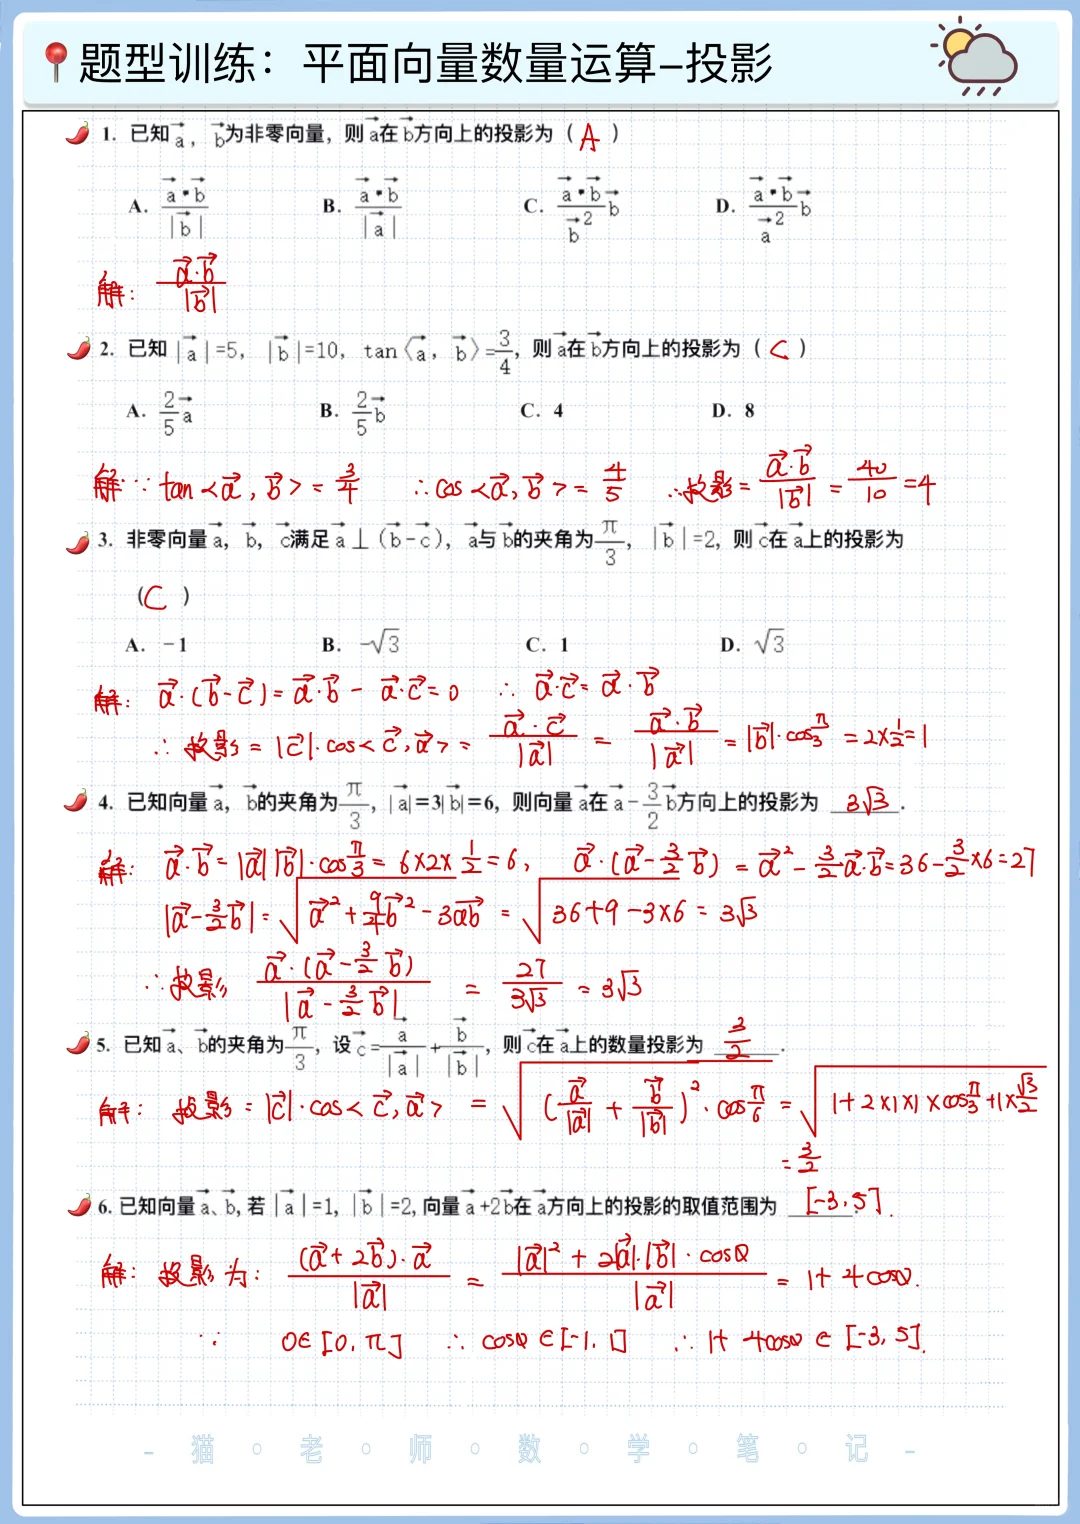 题型训练：平面向量数量运算–投影
1. 已知a⃗，b⃗为非零向量，则a⃗在b⃗方向上的投影为（A）
A. (a⃗·b⃗)/|b⃗| B. (a⃗·b⃗)/|a⃗| C. (a⃗·b⃗)/b⃗² b⃗ D. (a⃗·b⃗)/a⃗² b⃗
解：(a⃗·b⃗)/|b⃗|
2. 已知|a⃗|=5，|b⃗|=10，tan〈a⃗，b⃗〉=3/4，则a⃗在b⃗方向上的投影为（C）
A. 2/5 a⃗ B. 2/5 b⃗ C. 4 D. 8
解∵tan<a⃗,b⃗>=3/4 ∴cos<a⃗,b⃗>=4/5 ∴投影=(a⃗·b⃗)/|b⃗|=40/10=4
3. 非零向量a⃗，b⃗，c⃗满足a⃗⊥（b⃗-c⃗），a⃗与b⃗的夹角为π/3，|b⃗|=2，则c⃗在a⃗上的投影为
（C）
A. -1 B. -√3 C. 1 D. √3
解：a⃗·(b⃗-c⃗)=a⃗·b⃗-a⃗·c⃗=0 ∴a⃗·c⃗=a⃗·b⃗
∴投影=|c⃗|·cos<c⃗,a⃗>=(a⃗·c⃗)/|a⃗|=(a⃗·b⃗)/|a⃗|=|b⃗|·cosπ/3=2×1/2=1
4. 已知向量a⃗，b⃗的夹角为π/3，|a⃗|=3|b⃗|=6，则向量a⃗在a⃗-3/2 b⃗方向上的投影为 3√3.
解：a⃗·b⃗=|a⃗||b⃗|·cosπ/3=6×2×1/2=6, a⃗·(a⃗-3/2 b⃗)=a⃗²-3/2 a⃗·b⃗=36-3/2×6=27
|a⃗-3/2 b⃗|=√(a⃗²+9/4 b⃗²-3a⃗b⃗)=√(36+9-3×6)=3√3
∴投影 (a⃗·(a⃗-3/2 b⃗))/|a⃗-3/2 b⃗|=27/(3√3)=3√3
5. 已知a⃗、b⃗的夹角为π/3，设c⃗=a⃗/|a⃗|+b⃗/|b⃗|，则c⃗在a⃗上的数量投影为 3/2.
解：投影=|c⃗|·cos<c⃗,a⃗>=√(a⃗/|a⃗|+b⃗/|b⃗|)²·cosπ/6=√(1+2×1×1×cosπ/3+1×√3/2)
=3/2
6. 已知向量a⃗、b⃗，若|a⃗|=1，|b⃗|=2，向量a⃗+2b⃗在a⃗方向上的投影的取值范围为 [-3,5].
解：投影为：((a⃗+2b⃗)·a⃗)/|a⃗|=(|a⃗|²+2|a⃗|·|b⃗|·cosθ)/|a⃗|=1+4cosθ.
∵ θ∈[0,π] ∴cosθ∈[-1,1] ∴1+4cosθ∈[-3,5].
- 猫·老·师·数·学·笔·记 -